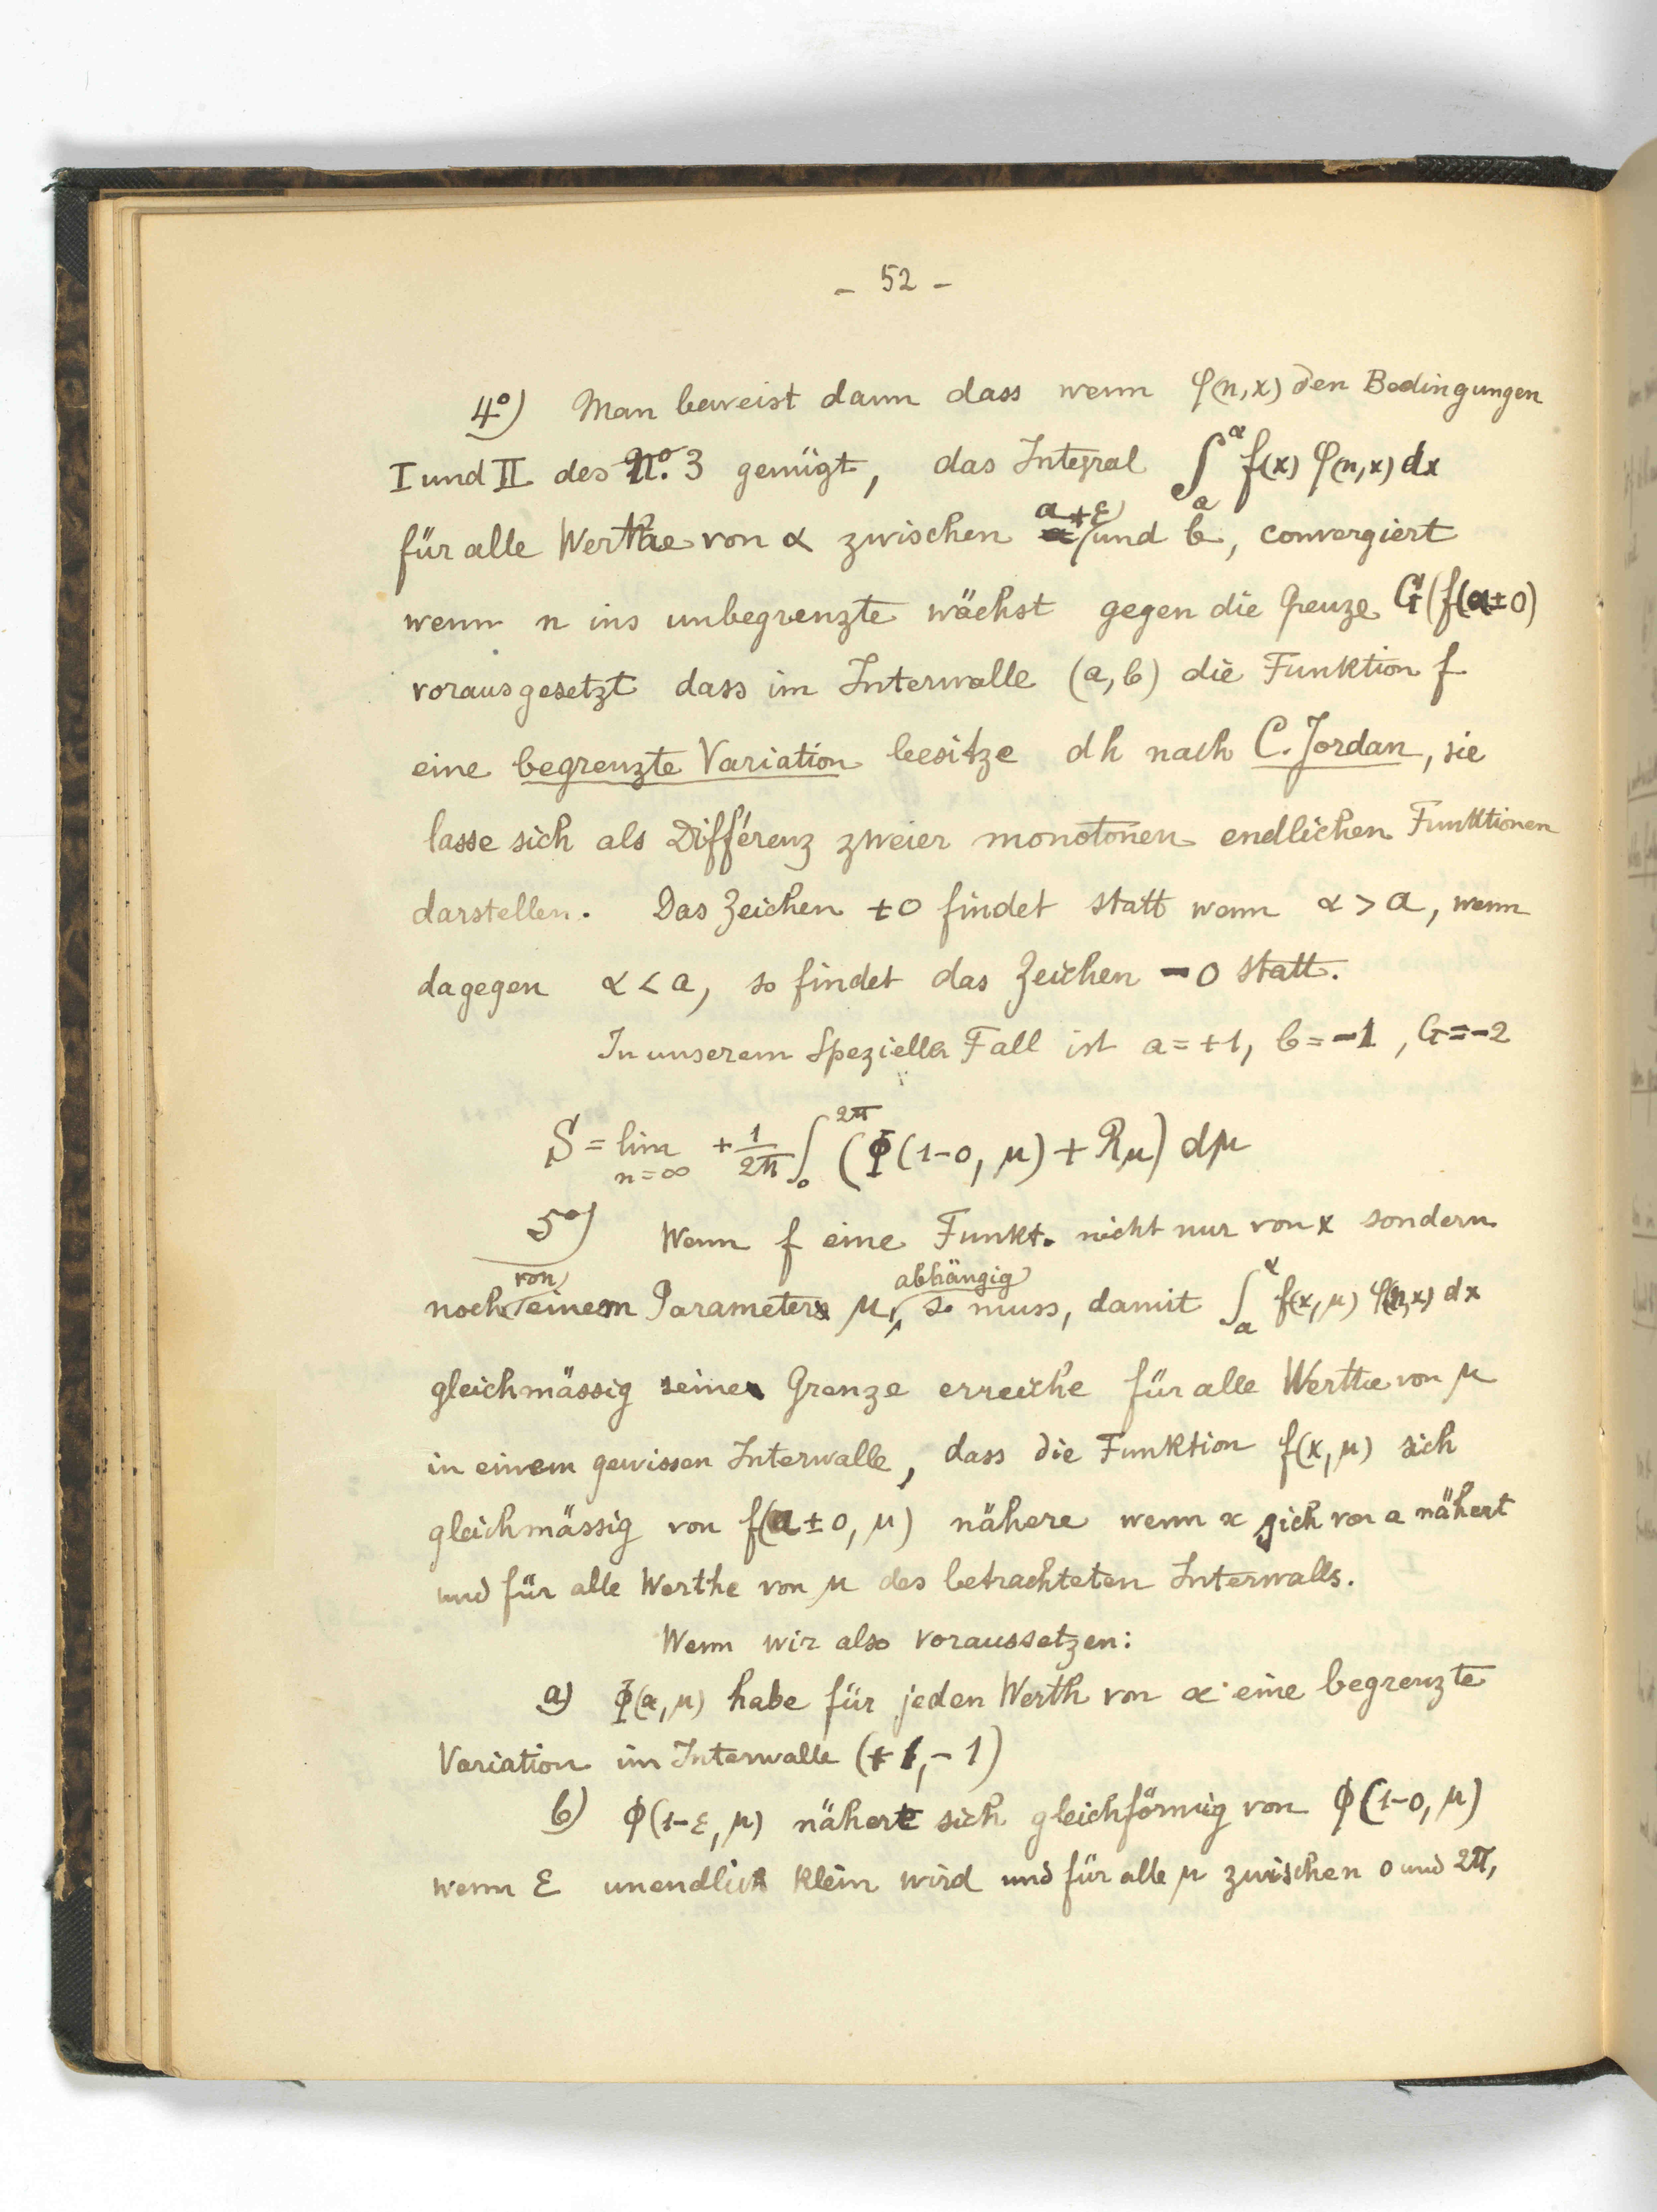 – 52 –
4°) Man beweist dann dass wenn φ(n,x) den Bedingungen
I und II des N°. 3 genügt, das Integral ∫_a^α f(x) φ(n,x) dx
für alle Werthe von α zwischen a+ε und b, convergiert
wenn n ins unbegrenzte wächst gegen die Grenze G(f(a±0)
vorausgesetzt dass im Interwalle (a,b) die Funktion f
eine begrenzte Variation besitze dh nach C. Jordan, sie
lasse sich als Différenz zweier monotonen endlichen Funktionen
darstellen. Das Zeichen +0 findet statt wenn α > a, wenn
dagegen α < a, so findet das Zeichen −0 statt.
In unserem Speziellen Fall ist a = +1, b = −1, G = −2
S = lim_{n=∞} + 1/2π ∫_0^{2π} (Φ(1−0, μ) + Rμ) dμ
5°) Wenn f eine Funkt. nicht nur von x sondern
noch von einem Parameter μ abhängig so muss, damit ∫_a^α f(x,μ) φ(n,x) dx
gleichmässig seine Grenze erreiche für alle Werthe von μ
in einem gewissen Interwalle, dass die Funktion f(x,μ) sich
gleichmässig von f(a±0, μ) nähere wenn x sich von a nähert
und für alle Werthe von μ des betrachteten Interwalls.
Wenn wir also voraussetzen:
a) Φ(α,μ) habe für jeden Werth von α eine begrenzte
Variation im Interwalle (+1, −1)
b) Φ(1−ε, μ) nähert sich gleichförmig von Φ(1−0, μ)
wenn ε unendlich klein wird und für alle μ zwischen 0 und 2π,